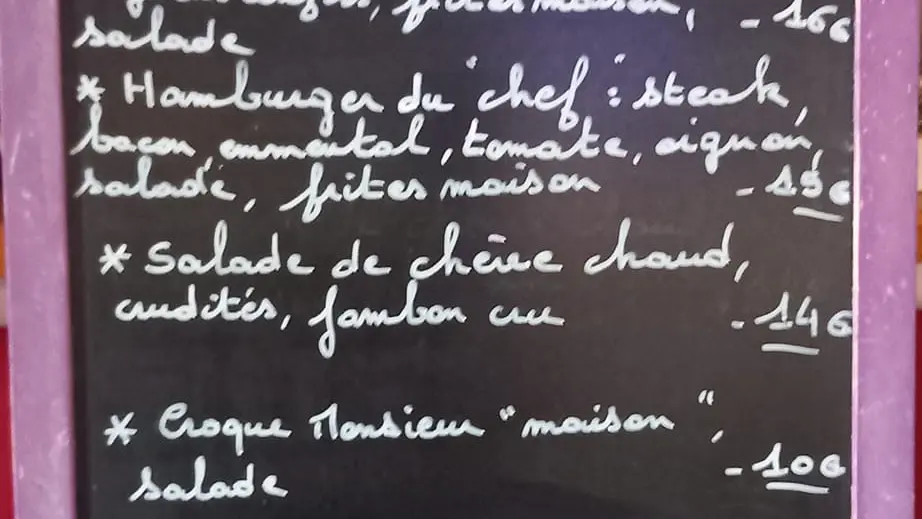 frites maison, - 16€
salade
* Hamburger du "chef" : steak,
bacon, emmental, tomate, oignon,
salade, frites maison - 15€
* Salade de chèvre chaud,
crudités, jambon cru - 14€
* Croque Monsieur "maison",
salade - 10€